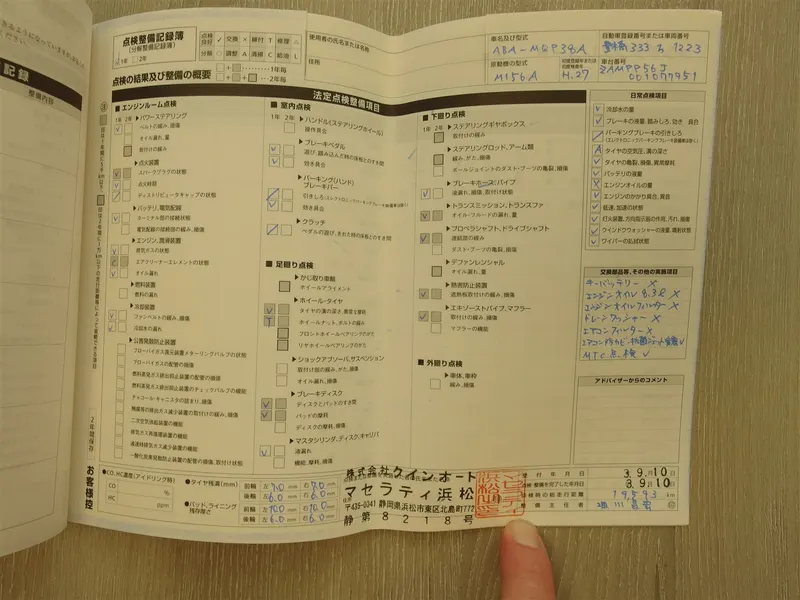 記録
整備内容
点検整備記録簿
(分解整備記録簿)
1年 2年
点検良好 交換 × 締付 T 修理 △
分解 ○ 調整 A 清掃 C 給油 L
1年毎
2年毎
点検の結果及び整備の概要
使用者の氏名または名称
住所
車名及び型式
ABA-MQP38A
自動車登録番号または車両番号
333 1223
原動機の型式
M156A
H.27
車台番号
ZAMPP56J
001077951
法定点検整備項目
■ エンジンルーム点検
1年 2年
▶パワーステアリング
ベルトの緩み、損傷
オイル漏れ、量
取付けの緩み
▶点火装置
スパークプラグの状態
点火時期
ディストリビュータキャップの状態
▶バッテリ、電気配線
ターミナル部の接続状態
電気配線の接続部の緩み、損傷
▶エンジン、潤滑装置
排気ガスの状態
エアクリーナーエレメントの状態
オイル漏れ
▶燃料装置
燃料の漏れ
▶冷却装置
ファンベルトの緩み、損傷
冷却水の漏れ
▶公害発散防止装置
ブローバイガス還元装置メターリングバルブの状態
ブローバイガスの配管の損傷
燃料蒸発ガス排出抑止装置の配管の損傷
燃料蒸発ガス排出抑止装置のチェックバルブの機能
チャコール・キャニスタの詰まり、損傷
触媒等の排出ガス減少装置の取付けの緩み、損傷
二次空気供給装置の機能
排気ガス再循環装置の機能
減速時排気ガス減少装置の機能
一酸化炭素発散防止装置の配管の損傷、取付状態
■ 室内点検
1年 2年
▶ハンドル(ステアリングホイール)
操作具合
▶ブレーキペダル
遊び、踏み込んだ時の床板とのすき間
効き具合
▶パーキング(ハンド)
ブレーキレバー
引きしろ(エレクトロニックパーキングブレーキ装着車は除く)
効き具合
▶クラッチ
ペダルの遊び、きれた時の床板とのすき間
■ 足廻り点検
▶かじ取り車輪
ホイールアライメント
▶ホイール・タイヤ
タイヤの溝の深さ、異常な摩耗
ホイールナット、ボルトの緩み
フロントホイールベアリングのガタ
リヤホイールベアリングのガタ
▶ショックアブソーバ、サスペンション
取付け部の緩み、がた、損傷
オイル漏れ、損傷
▶ブレーキディスク
ディスクとパッドのすき間
パッドの摩耗
ディスクの摩耗、損傷
▶マスタシリンダ、ディスク、キャリパ
液漏れ
機能、摩耗、損傷
■ 下廻り点検
1年 2年
▶ステアリングギヤボックス
取付けの緩み
▶ステアリングロッド、アーム類
緩み、がた、損傷
ボールジョイントのダスト・ブーツの亀裂、損傷
▶ブレーキホース、パイプ
液漏れ、損傷、取付け状態
▶トランスミッション、トランスファ
オイル・フルードの漏れ、量
▶プロペラシャフト、ドライブシャフト
連結部の緩み
ダスト・ブーツの亀裂、損傷
▶デファレンシャル
オイル漏れ、量
▶熱害防止装置
遮熱板取付部の緩み、損傷
▶エキゾーストパイプ、マフラー
取付けの緩み、損傷
マフラーの機能
■ 外廻り点検
▶車体、車枠
緩み、損傷
日常点検項目
冷却水の量
ブレーキの液量、踏みしろ、効き具合
パーキングブレーキの引きしろ
(エレクトロニックパーキングブレーキ装着車は除く)
タイヤの空気圧、溝の深さ
タイヤの亀裂、損傷、異常摩耗
バッテリの液量
エンジンオイルの量
エンジンのかかり具合、異音
低速、加速の状態
灯火装置、方向指示器の作用、汚れ、損傷
ウインドウウォッシャーの液量、噴射状態
ワイパーの払拭状態
交換部品等、その他の実施項目
キーバッテリー ×
エンジンオイル 8.3ℓ ×
エンジンオイルフィルター ×
ドレンワッシャー ×
エアコンフィルター ×
MTC点検 ✓
アドバイザーからのコメント
2年間保存
お客様控
●CO、HC濃度(アイドリング時)
CO %
HC ppm
●タイヤ残溝(mm)
前輪 左7.0mm 右7.0mm
後輪 左6.0mm 右6.0mm
●パッド、ライニング
残存厚さ
前輪 左10.0mm 右10.0mm
後輪 左6.0mm 右6.0mm
株式会社クインオート
マセラティ浜松
〒435-0041 静岡県浜松市東区北島町777
静第8218号
受付年月日 3.9.10日
検・整備を完了した年月日 3.9.10日
点検時の総走行距離 19,593 km
整備主任者